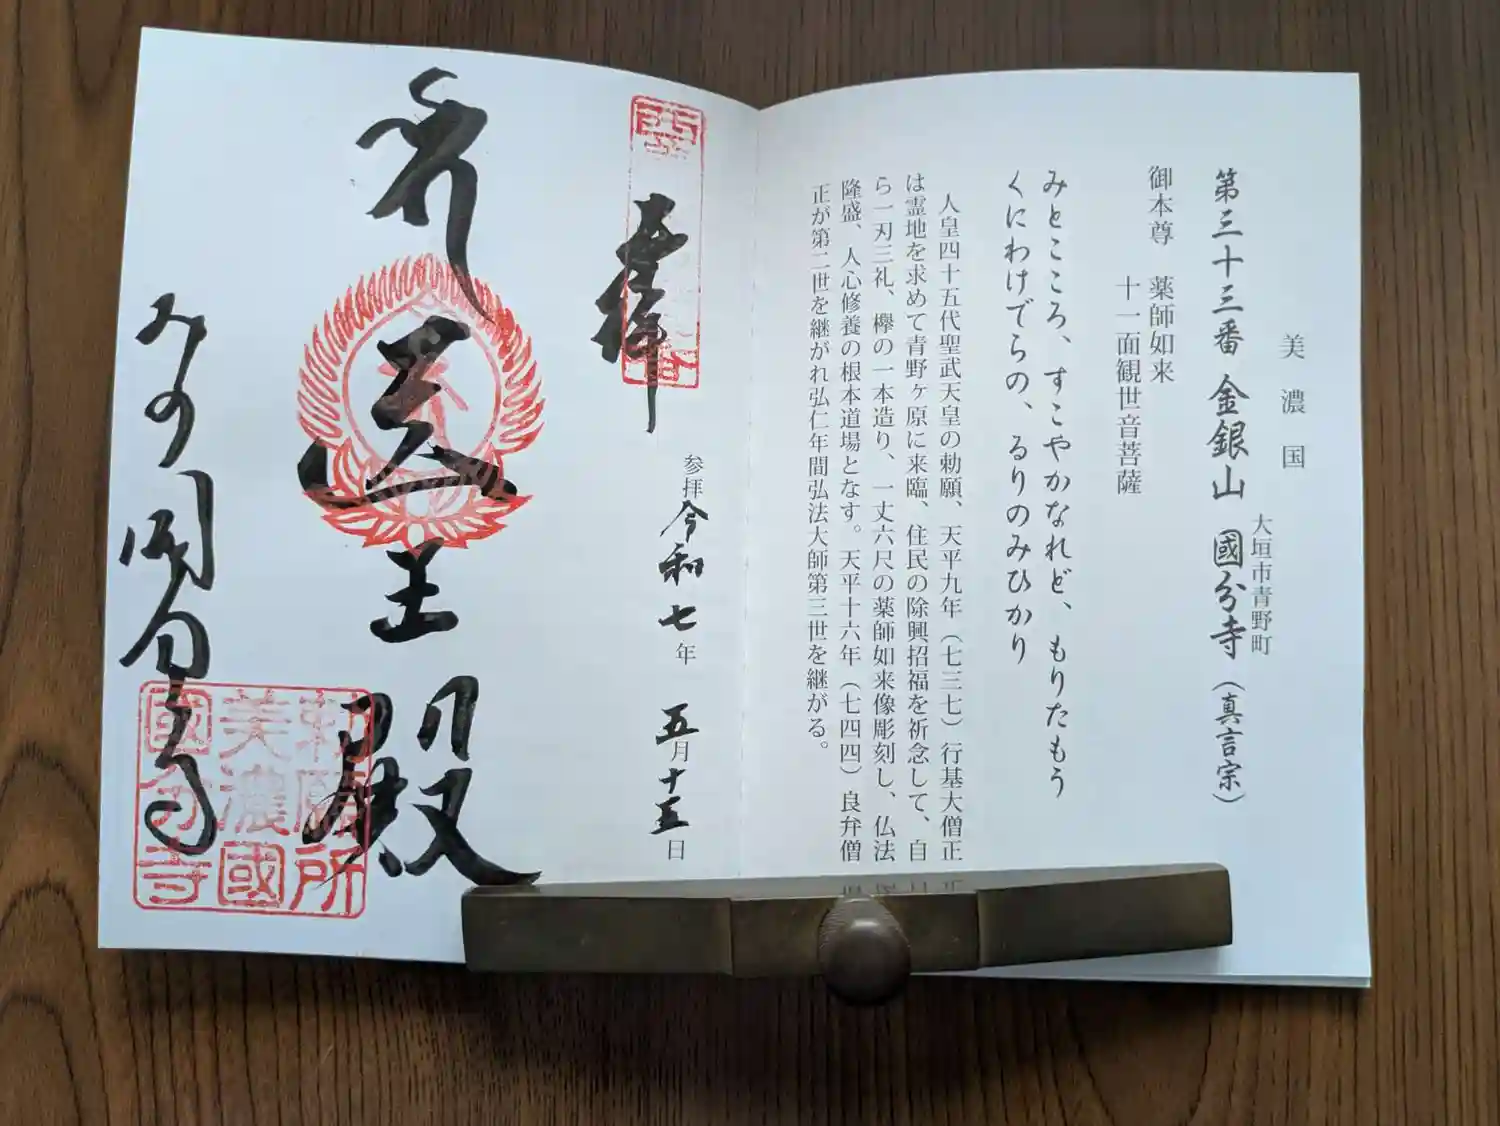 美濃国
大垣市青野町
第三十三番 金銀山 國分寺（真言宗）
御本尊 薬師如来
十一面観世音菩薩
みところろ、すこやかなれど、もりたもう
くにわけでらの、るりのみひかり
人皇四十五代聖武天皇の勅願、天平九年（七三七）行基大僧正
は霊地を求めて青野ヶ原に来臨、住民の除興招福を祈念して、自
ら一刃三礼、欅の一本造り、一丈六尺の薬師如来像彫刻し、仏法
隆盛、人心修養の根本道場となす。天平十六年（七四四）良弁僧
正が第二世を継がれ弘仁年間弘法大師第三世を継がる。
奉拝
参拝 令和七年 五月十五日
医王殿
みの国分寺
勅願所
美濃國
國分寺